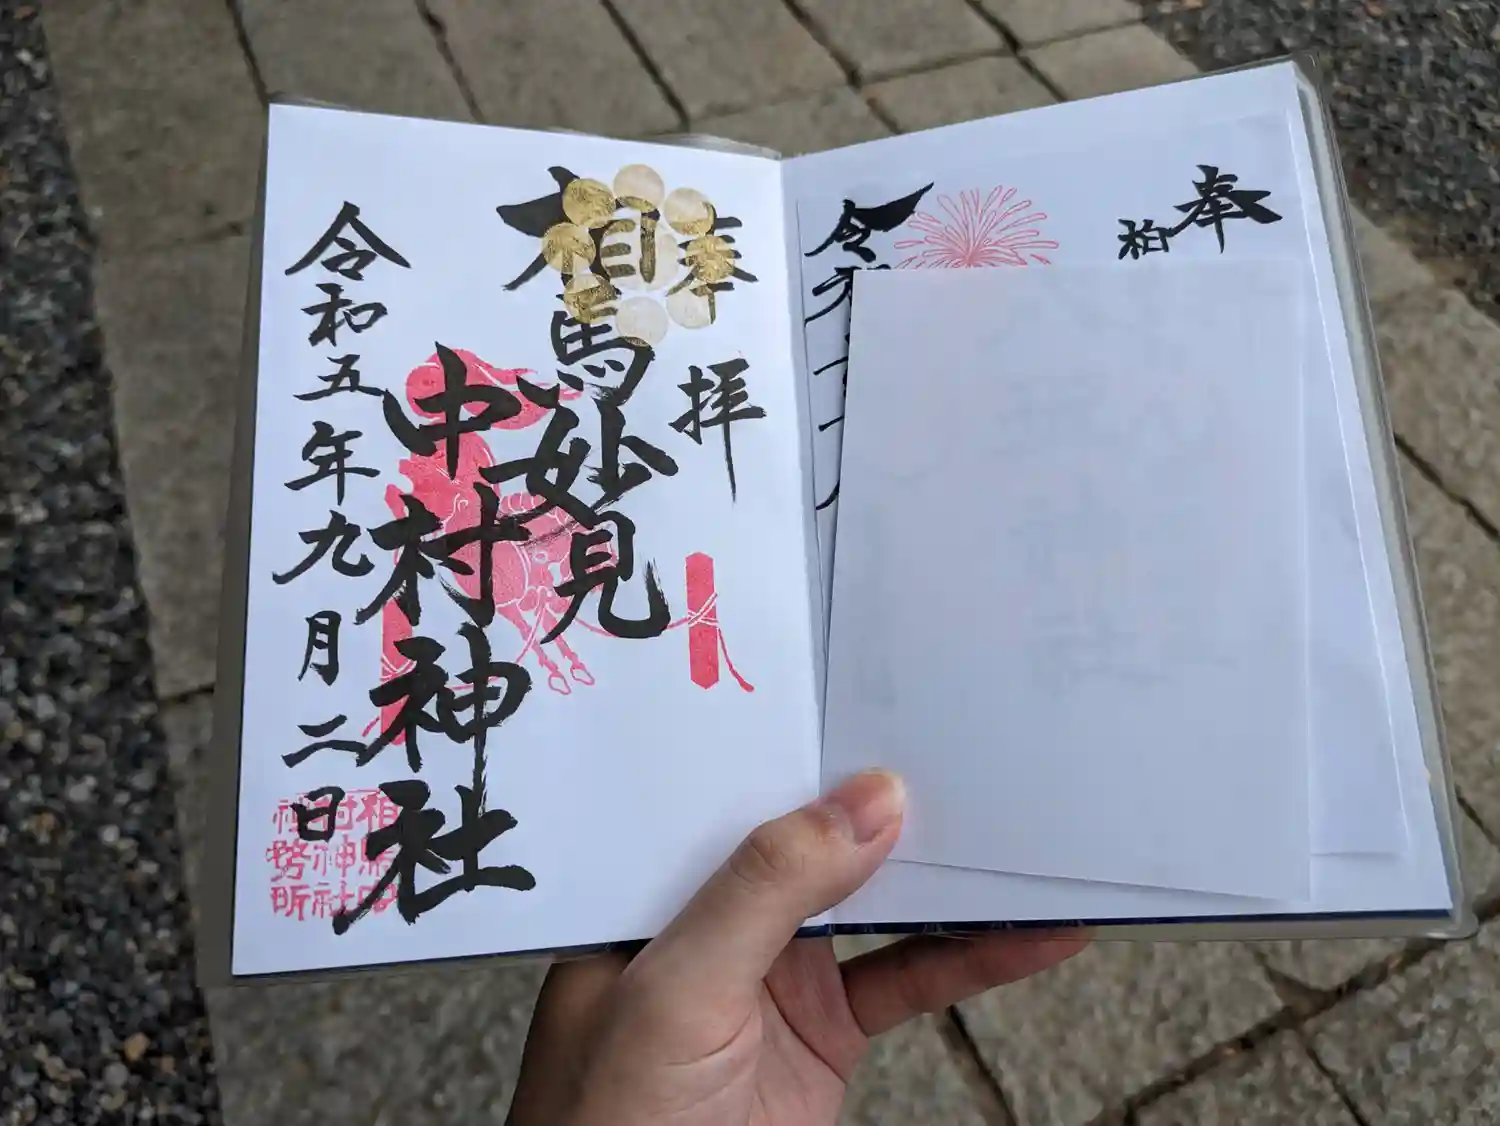 奉
柏
令和
奉拝
相馬妙見
中村神社
令和五年九月二日
相馬中
村神社
社務所